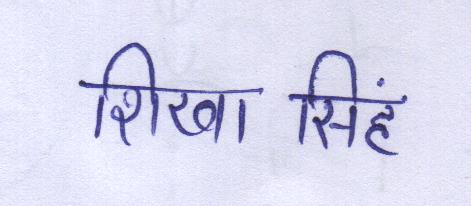 शिखा सिहं